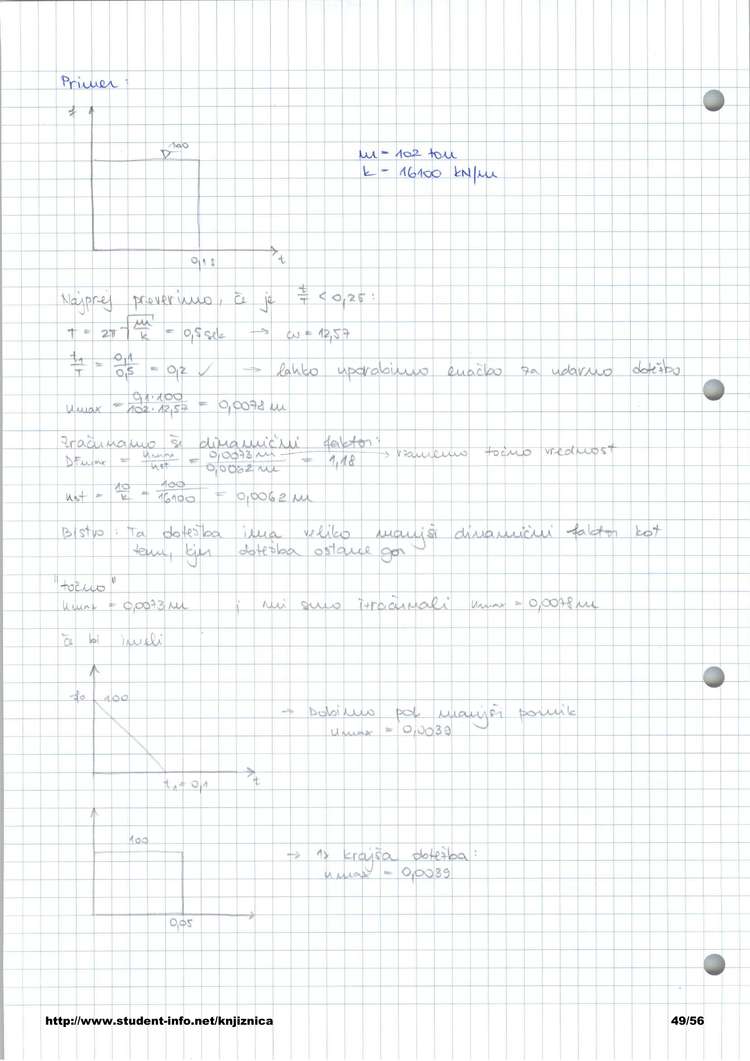 Primer:
f
100
m = 102 ton
k = 16100 kN/m
0,1 s
t
Najprej preverimo, če je t/T < 0,25:
T = 2π √(m/k) = 0,5 sek → ω = 12,57
t1/T = 0,1/0,5 = 0,2 ✓ → lahko uporabimo enačbo za udarno obtežbo
umax = 0,1·100/102·12,57 = 0,0078 m
Izračunamo še dinamični faktor:
DFmax = umax/ust = 0,0073 m/0,0062 m = 1,18 → vzamemo točno vrednost
ust = P0/k = 100/16100 = 0,0062 m
Bistvo: Ta obtežba ima veliko manjši dinamični faktor kot
tem, kjer obtežba ostane gor
"točno"
umax = 0,0073 m ; mi smo izračunali umax = 0,0078 m
če bi imeli
f0 100
→ Dobimo pol manjši pomik
umax = 0,0039
t1 = 0,1
t
100
→ krajša obtežba:
umax = 0,0039
0,05
http://www.student-info.net/knjiznica
49/56